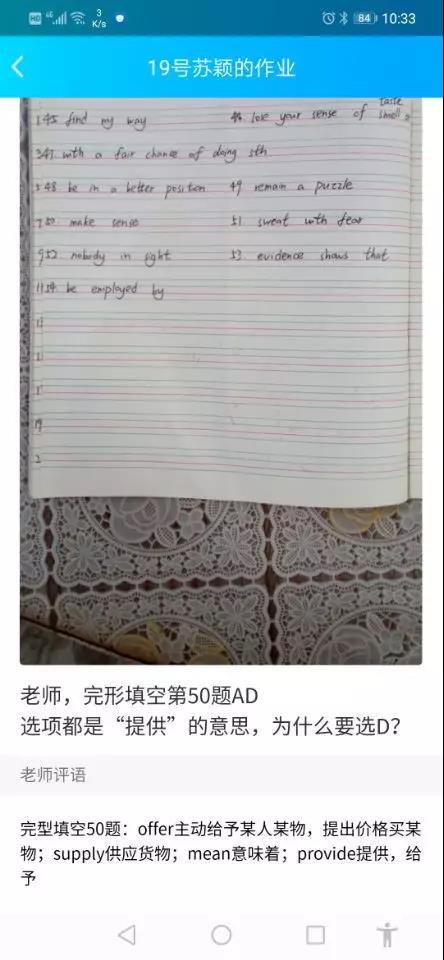 HD 4G 3 K/s 84 10:33
19号苏颖的作业
45 find my way 46 lose your sense of taste smell
47 with a fair chance of doing sth
48 be in a better position 49 remain a puzzle
50 make sense 51 sweat with fear
52 nobody in sight 53 evidence shows that
54 be employed by
老师，完形填空第50题AD
选项都是“提供”的意思，为什么要选D？
老师评语
完型填空50题：offer主动给予某人某物，提出价格买某
物；supply供应货物；mean意味着；provide提供，给
予